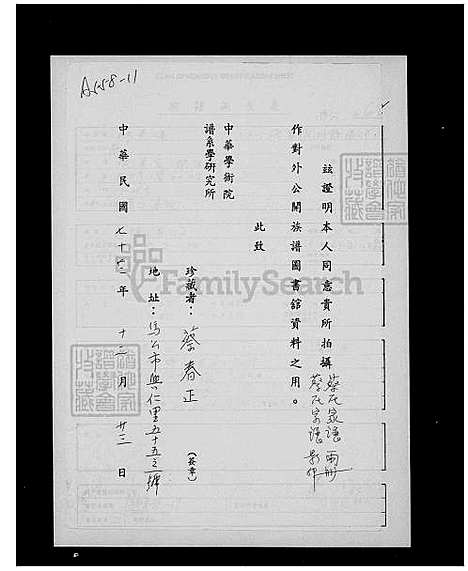 A558-11
茲證明本人同意貴所拍攝蔡氏家譜兩冊
蔡氏宗譜影印
作對外公開族譜圖書館資料之用。
此致
中華學術院
譜系學研究所
珍藏者：蔡春正（簽章）
地址：馬公市興仁里五十五之一號
中華民國七十三年十二月廿三日
FamilySearch